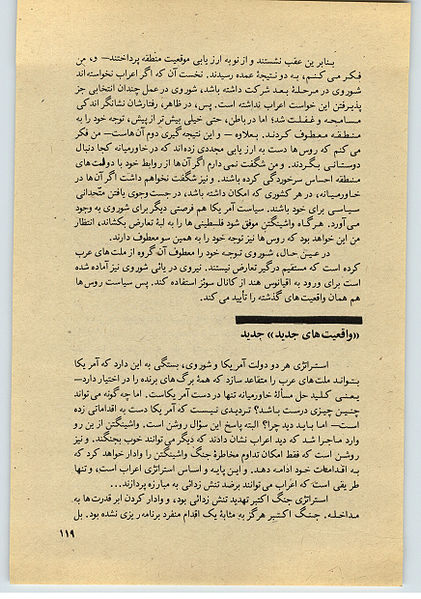 بنابر ین عقب نشستند و از نو به ارز یابی موقعیت منطقه پرداختند— و، من
فکر می کنم، به دو نتیجهٔ عمده رسیدند. نخست آن که اگر اعراب نخواسته اند
شوروی در مرحلهٔ بعد شرکت داشته باشد، شوروی در عمل چندان انتخابی جز
پذیرفتن این خواست اعراب نداشته است. پس، در ظاهر، رفتارشان نشانگر اندکی
مسامحه و غفلت شد؛ اما در باطن، حتی خیلی بیش تر از پیش، توجه خود را به
منطقه معطوف کردند. بعلاوه — و این نتیجه گیری دوم آن هاست— من فکر
می کنم که روس ها دست به ارز یابی مجددی زده اند که در خاورمیانه کجا دنبال
دوستانی بگردند. و من شگفت نمی دارم اگر آن ها از روابط خود با دولت های
منطقه احساس سرخوردگی کرده باشند. و نیز شگفت نخواهم داشت اگر آن ها در
خاورمیانه، در هر کشوری که امکان داشته باشد، در جست وجوی یافتن متّحدانی
سیاسی برای خود باشند. سیاست آمر یکا هم فرصتی دیگر برای شوروی به وجود
می آورد. هرگاه واشینگتن موفق شود فلسطینی ها را به لبهٔ تعارض بکشاند، انتظار
من این خواهد بود که روس ها نیز توجه خود را به همین سو معطوف دارند.
در عین حال، شوروی توجه خود را معطوف آن گروه از ملت های عرب
کرده است که مستقیم درگیر تعارض نیستند. نیروی در یائی شوروی نیز آماده شده
است برای ورود به اقیانوس هند از کانال سوئز استفاده کند. پس سیاست روس ها
هم همان واقعیت های گذشته را تأیید می کند.
«واقعیت های جدید» جدید
استراتژی هر دو دولت آمر یکا و شوروی، بستگی به این دارد که آمر یکا
بتواند ملت های عرب را متقاعد سازد که همهٔ برگ های برنده را در اختیار دارد—
یعنی کلید حل مسألهٔ خاورمیانه تنها در دست آمر یکاست. اما چه گونه می تواند
چنین چیزی درست باشد؟ تردیدی نیست که آمر یکا دست به اقداماتی زده
است— اما باید دید چرا؟ البته پاسخ این سؤال روشن است. واشینگتن از ین رو
وارد ماجرا شد که دید اعراب نشان دادند که دیگر می توانند خوب بجنگند. و نیز
روشن است که فقط امکان تداوم مخاطرهٔ جنگ واشینگتن را وادار خواهد کرد که
به اقدامات خود ادامه دهد. و این پایه و اساس استراتژی اعراب است، و تنها
طر یقی است که اعراب می توانند برضد تنش زدائی به مبارزه پردازند...
استراتژی جنگ اکتبر تهدید تنش زدائی بود، و وادار کردن ابر قدرت ها به
مداخله. جنگ اکتبر هرگز به مثابهٔ یک اقدام منفرد برنامه ر یزی نشده بود. بل
۱۱۹